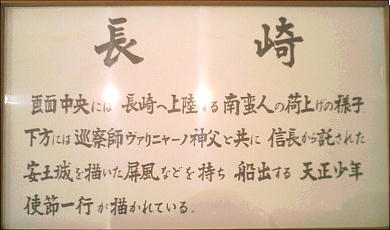 長崎
画面中央には 長崎へ上陸する 南蛮人の荷上げの様子
下方には 巡察師ヴァリニャーノ神父と共に 信長から託された
安土城を描いた屏風などを持ち 船出する 天正少年
使節一行が描かれている.